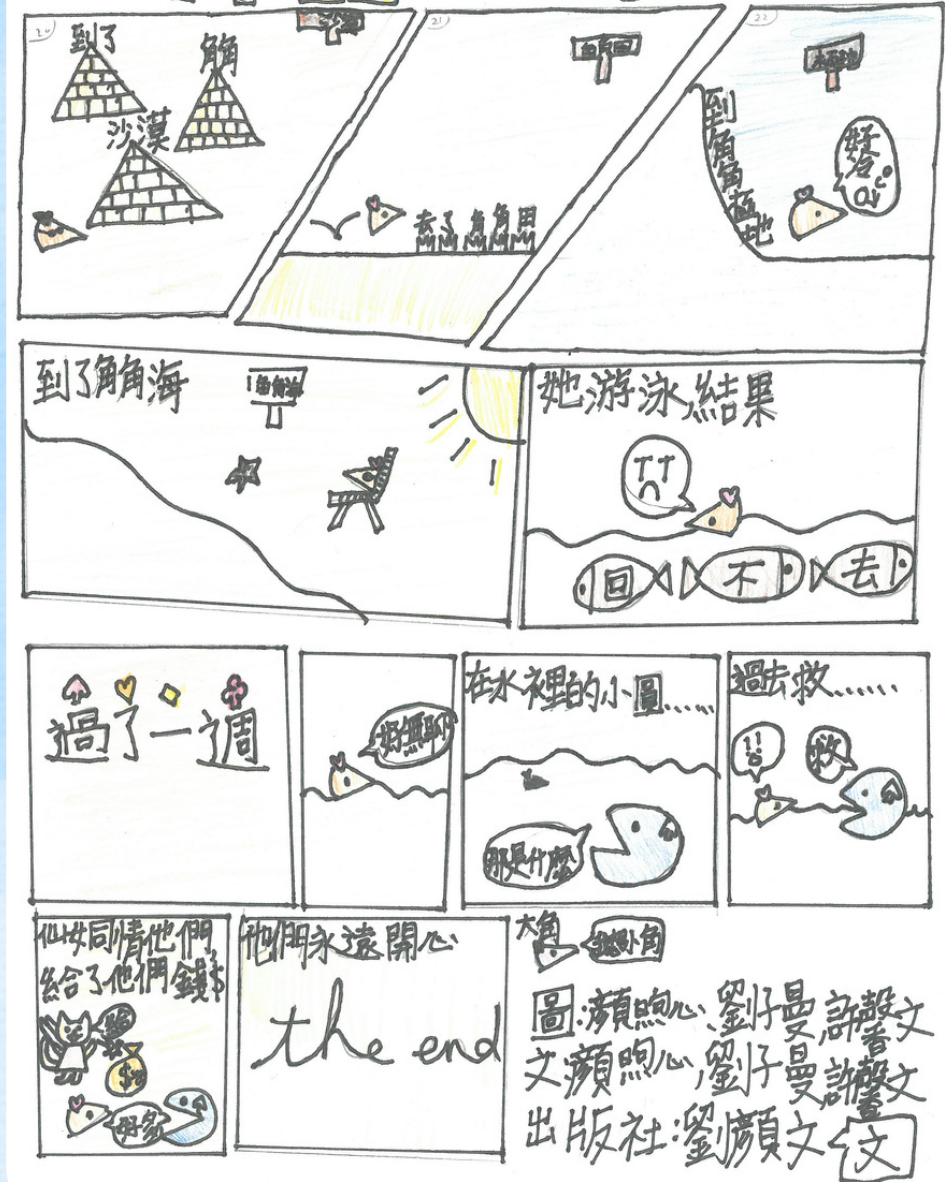 20
到了
角角
沙漠
21
去了魚角田
22
到角角極地
極地
好冷
到了角角海
角角海
她游泳,結果
回不去
過了一週
好無聊
在水裡的小圓......
那是什麼
過去救......
!!
救
仙女同情他們,
給了他們錢$
給
$
好多
他們永遠開心
the end
大角
圖:顏煦心、劉子曼、許馨文
文:顏煦心、劉子曼、許馨文
出版社:劉顏文
文